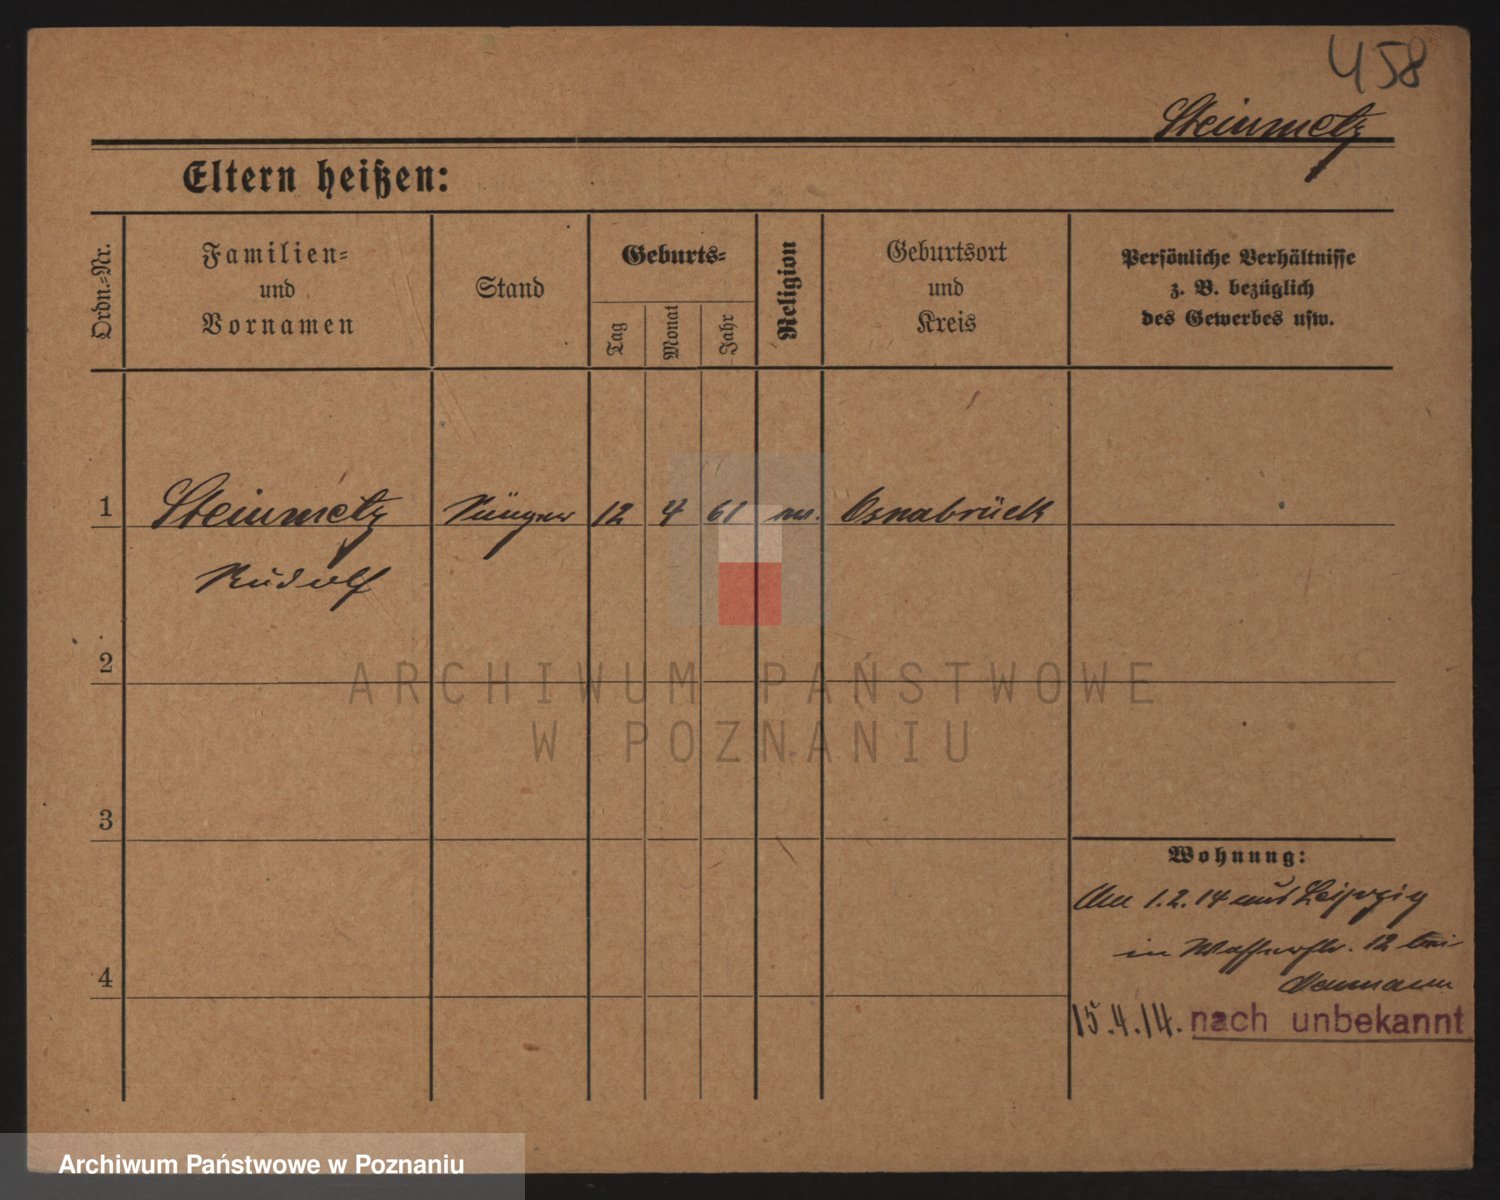 458
Steinmetz
Eltern heißen:
Ordn.-Nr.
Familien-
und
Vornamen
Stand
Geburts-
Tag
Monat
Jahr
Religion
Geburtsort
und
Kreis
Persönliche Verhältnisse
z. B. bezüglich
des Gewerbes usw.
1 Steinmetz 12 4 61 Osnabrück
Rudolf
2
ARCHIWUM PAŃSTWOWE
W POZNANIU
3
Wohnung:
1.2.14 aus Leipzig
in Wasserstr. 12 bei
4
15.4.14. nach unbekannt
Archiwum Państwowe w Poznaniu